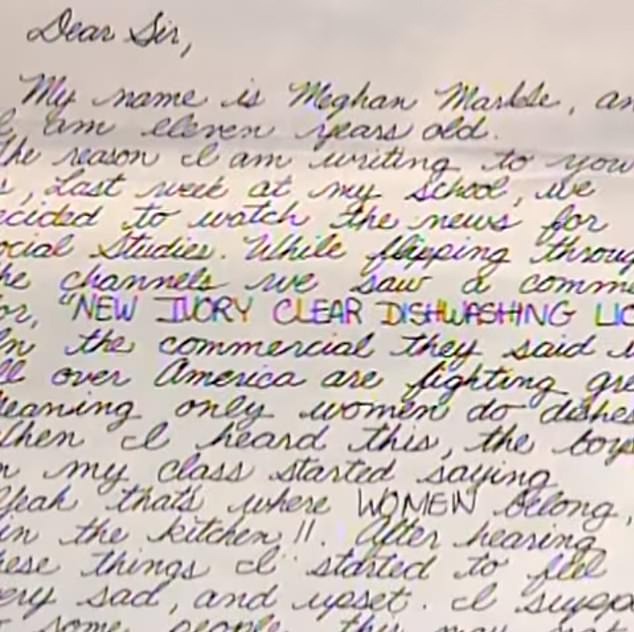 Dear Sir,
My name is Meghan Markle, an
I am eleven years old.
The reason I am writing to you
s, Last week at my school, we
ecided to watch the news for
ocial Studies. While flipping throug
he channels we saw a comme
or, "NEW IVORY CLEAR DISHWASHING LIQ
In the commercial they said w
ll over America are fighting gre
Meaning only women do dishes
When I heard this, the boys
n my class started saying
Yeah thats where WOMEN belong,
in the kitchen!!. After hearing
hese things I started to feel
ery sad, and upset. I suppo
some people this may not